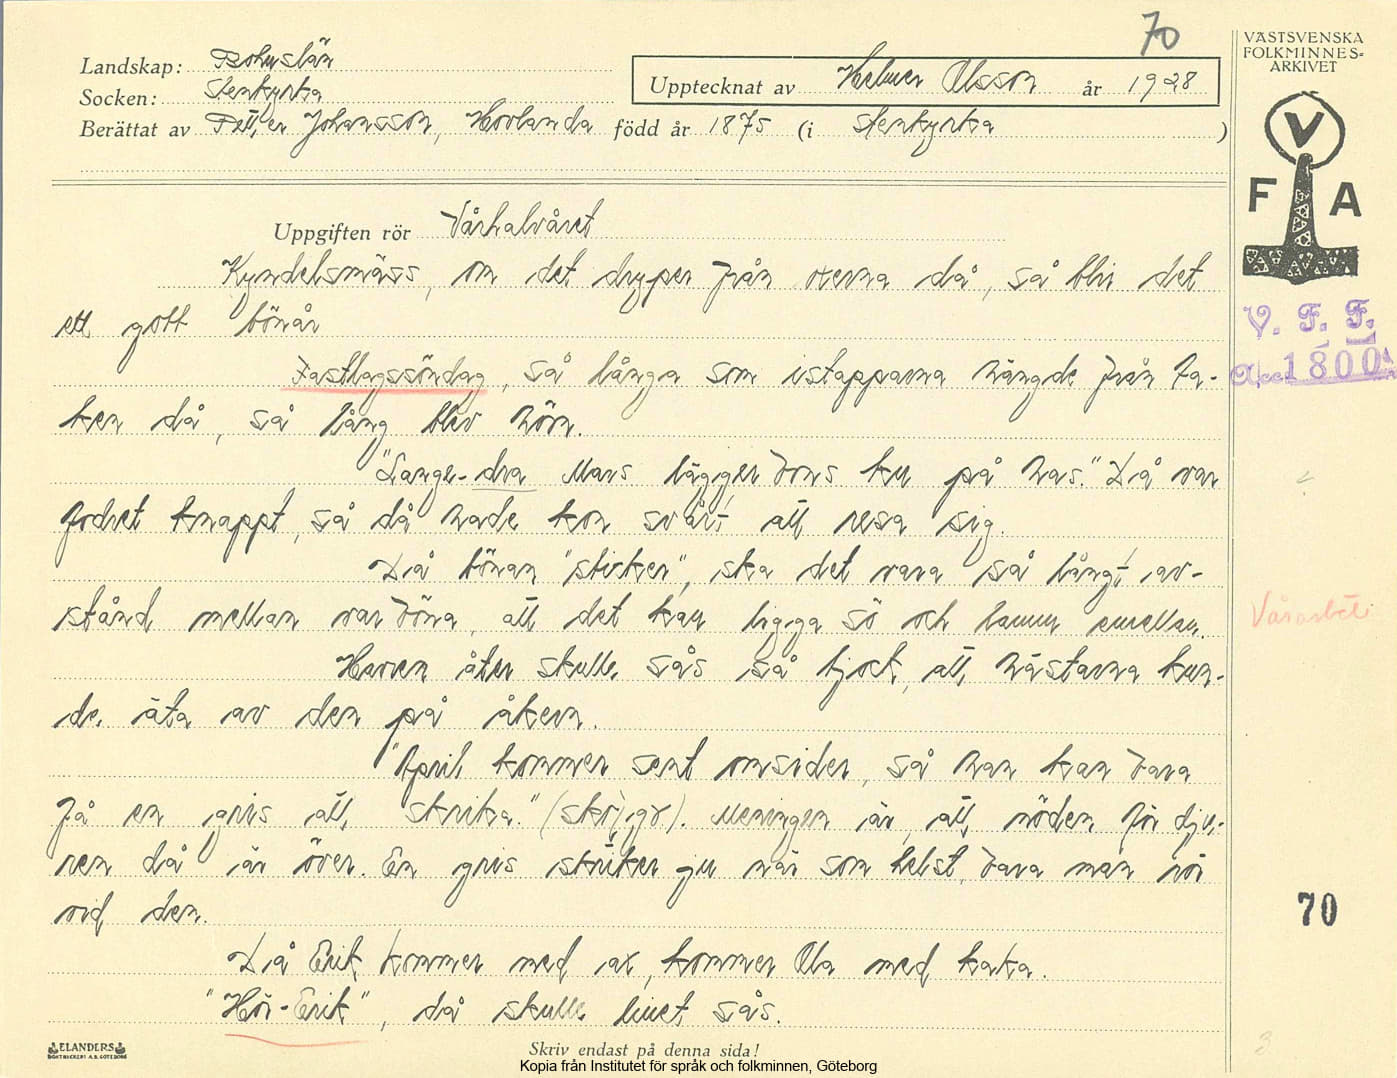 70
VÄSTSVENSKA
FOLKMINNES-
ARKIVET
Landskap: Bohuslän
Upptecknat av Helmer Olsson år 1928
Socken: Stenkyrka
Berättat av Petter Johansson, Hovlanda född år 1875 (i Stenkyrka)
V
F A
Uppgiften rör Vårhalvåret
Kyndelsmäss, om det dryper från oxerna då, så blir det
ett gott bönår
V. F. F.
Acc. 1800
Fastlagssöndag, så långa som istapparna hängde från ta-
ken då, så lång blev hörn.
"Lange-dra Mars lägger vons ku på has." Då var
fodret knappt, så då hade kon svårt att resa sig.
Då bönan "sticker", ska det vara så långt av-
stånd mellan var böna, att det kan ligga sö och lamm emellan.
Vårarbete
Havren åter skulle sås så tjock, att hästarna kun-
de äta av den på åkern.
"April kommer sent omsider, så han kan bara
få en gris att skrika." Meningen är, att nöden för dju-
ren då är över. En gris skriker ju när som helst, bara man rör
vid den.
70
Då Erik kommer med ax, kommer Ola med kaka.
"Hör-Erik", då skulle linet sås.
ELANDERS
BOKTRYCKERI A.B. GÖTEBORG
Skriv endast på denna sida!
Kopia från Institutet för språk och folkminnen, Göteborg